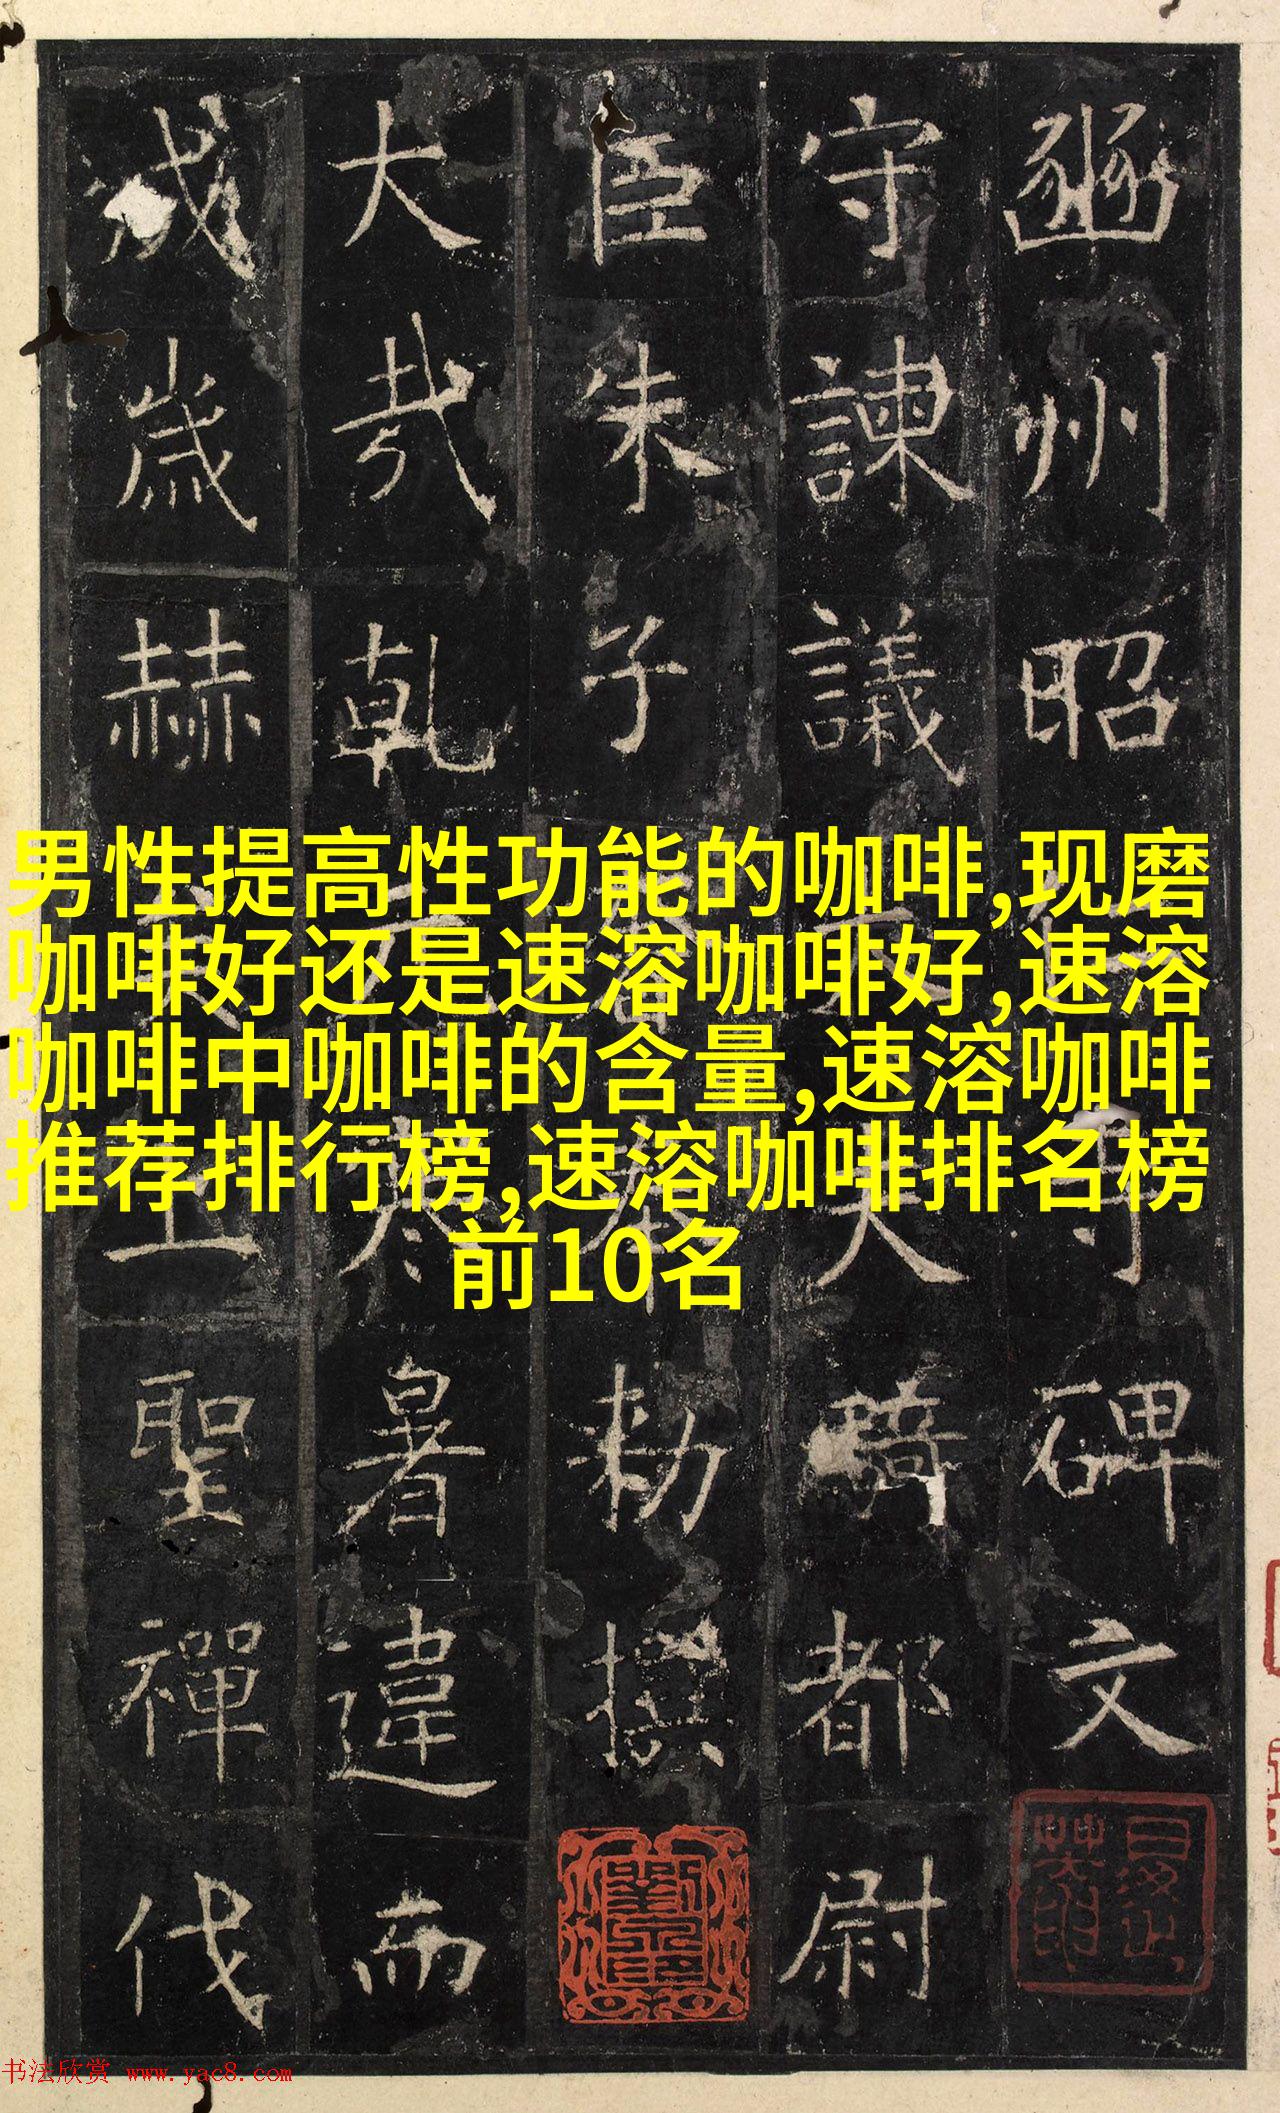 男性提高性功能的咖啡,现磨
咖啡好还是速溶咖啡好,速溶
咖啡中咖啡的含量,速溶咖啡
推荐排行榜,速溶咖啡排名榜
前10名
豳州昭寺碑文
守諫議夫騎都尉
臣朱子勑撰
大哉乾暑違而
成歲赫聖禪代
书法欣赏 www.yac8.com